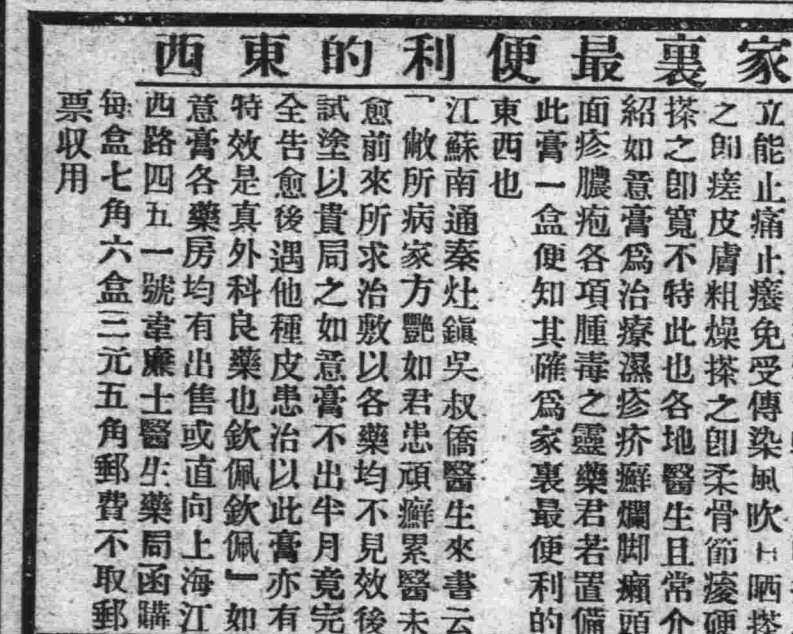 家裏最便利的東西
立能止痛止癢免受傳染風吹日晒搽
之卽瘥皮膚粗燥搽之卽柔骨節痠硬
搽之卽寬不特此也各地醫生且常介
紹如意膏爲治療濕疹疥癬爛脚癩頭
面疹膿疱各項腫毒之靈藥君若置備
此膏一盒便知其確爲家裏最便利的
東西也
江蘇南通秦灶鎭吳叔僑醫生來書云
「敝所病家方艷如君患頑癬累醫未
愈前來所求治敷以各藥均不見效後
試塗以貴局之如意膏不出半月竟完
全告愈後遇他種皮患治以此膏亦有
特效是真外科良藥也欽佩欽佩』如
意膏各藥房均有出售或直向上海江
西路四五一號韋廉士醫生藥局函購
每盒七角六盒三元五角郵費不取郵
票収用